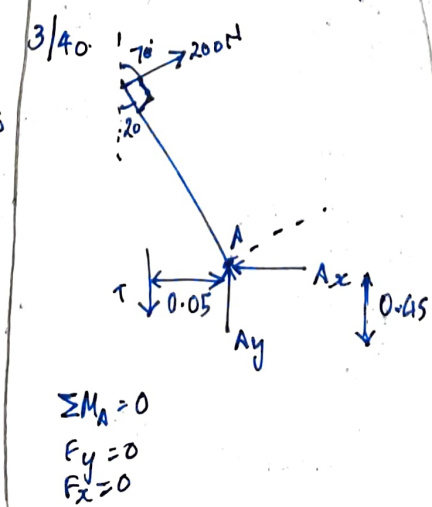 3/40.
70°
200N
20
A
T
0.05
Ax
0.45
Ay
ΣMA = 0
Fy = 0
Fx = 0